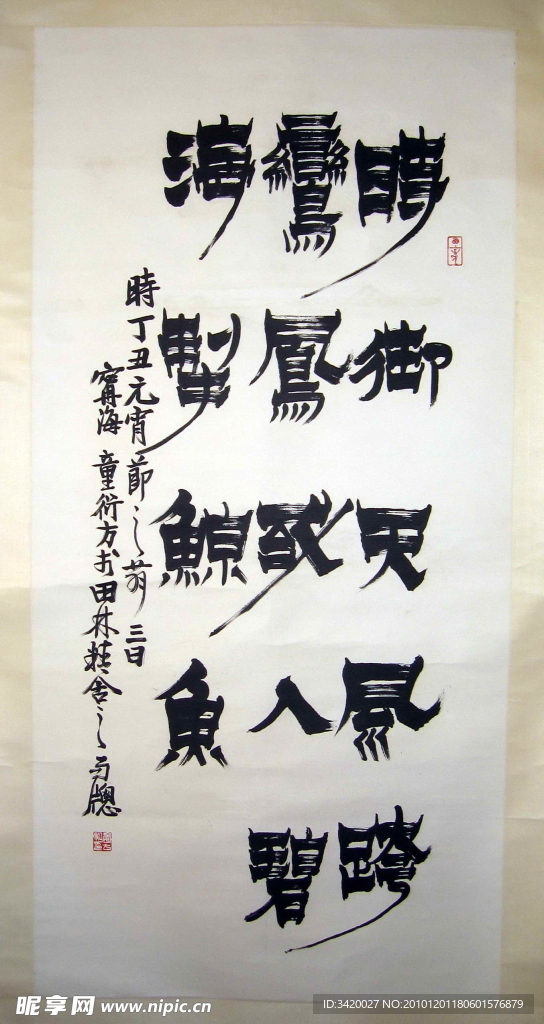 時御天風跨
鸞鳳或入碧
海掣鯨魚
時丁丑元宵節之前三日
寗海童衍方於田林精舍之南牕
昵享网 www.nipic.cn
ID:3420027 NO:20101201180601576879